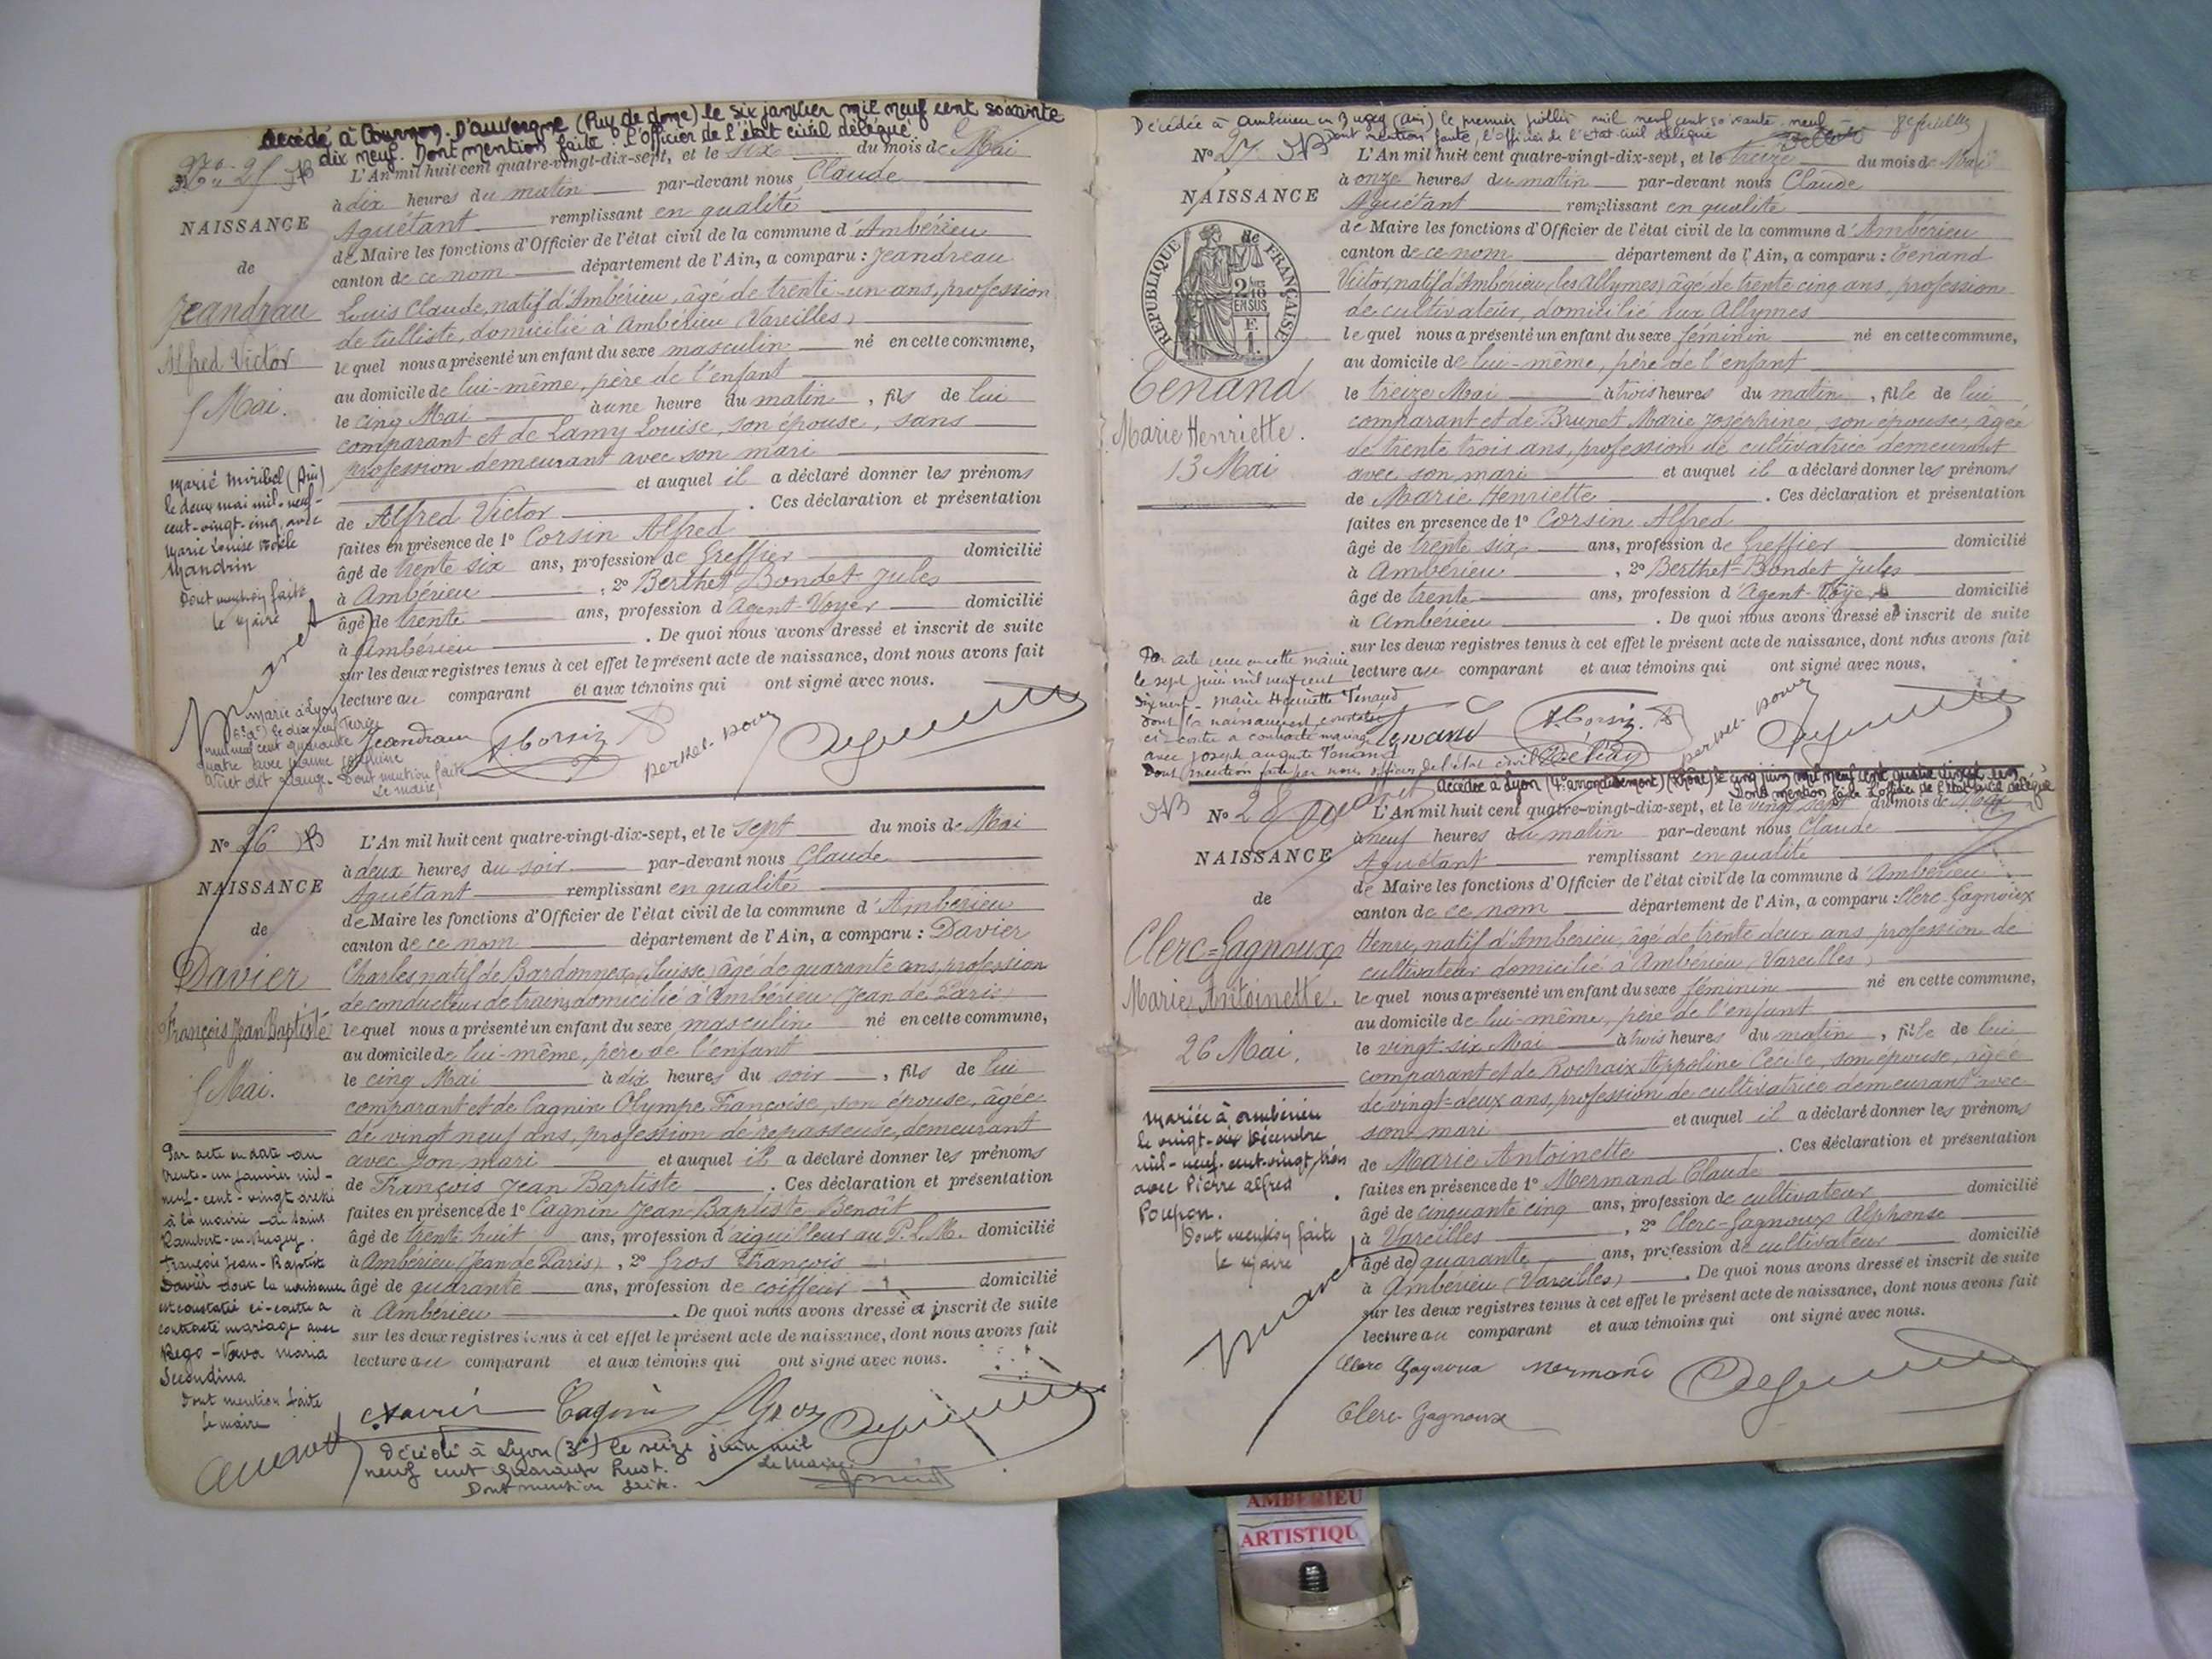 Décédé à Cournon-D'auvergne (Puy de dome) le six janvier mil neuf cent soixante
dix neuf. Dont mention faite. l'Officier de l'état civil délégué.
No 25
NAISSANCE
de
Jeandreau
Alfred Victor
5 Mai.
L'An mil huit cent quatre-vingt-dix-sept, et le six du mois de Mai
à dix heures du matin par-devant nous Claude
Aguétant remplissant en qualité
de Maire les fonctions d'Officier de l'état civil de la commune d'Ambérieu
canton de ce nom département de l'Ain, a comparu : Jeandreau
Louis Claude, natif d'Ambérieu, âgé de trente-un ans, profession
de tulliste, domicilié à Ambérieu (Vareilles)
lequel nous a présenté un enfant du sexe masculin né en cette commune,
au domicile de lui-même, père de l'enfant
le cinq Mai à une heure du matin, fils de lui
comparant et de Lamy Louise, son épouse, sans
profession demeurant avec son mari
et auquel il a déclaré donner les prénoms
de Alfred Victor. Ces déclaration et présentation
faites en présence de 1° Corsin Alfred
âgé de trente six ans, profession de Greffier domicilié
à Ambérieu, 2° Berthet-Bondet Jules
âgé de trente ans, profession d'Agent-Voyer domicilié
à Ambérieu. De quoi nous avons dressé et inscrit de suite
sur les deux registres tenus à cet effet le présent acte de naissance, dont nous avons fait
lecture au comparant et aux témoins qui ont signé avec nous.
Marié Miribel (Ain)
le deux mai mil-neuf-
cent-vingt-cinq avec
Marie Louise
Mandrin
Dont mention faite
le Maire
Marié à Lyon
mil neuf cent quarante
quatre avec Jeanne
Dont mention faite
Le maire
Jeandreau A. Corsin Berthet-Bondet
No 26
NAISSANCE
de
Davier
François Jean Baptiste
5 Mai.
L'An mil huit cent quatre-vingt-dix-sept, et le sept du mois de Mai
à deux heures du soir par-devant nous Claude
Aguétant remplissant en qualité
de Maire les fonctions d'Officier de l'état civil de la commune d'Ambérieu
canton de ce nom département de l'Ain, a comparu : Davier
Charles, natif de Bardonnex (Suisse) âgé de quarante ans, profession
de conducteur de trains, domicilié à Ambérieu (Jean de Paris)
lequel nous a présenté un enfant du sexe masculin né en cette commune,
au domicile de lui-même, père de l'enfant
le cinq Mai à dix heures du soir, fils de lui
comparant et de Cagnin Olympe Françoise, son épouse, âgée
de vingt neuf ans, profession de repasseuse, demeurant
avec son mari et auquel il a déclaré donner les prénoms
de François Jean Baptiste. Ces déclaration et présentation
faites en présence de 1° Cagnin Jean-Baptiste Benoît
âgé de trente huit ans, profession d'aiguilleur au P.L.M. domicilié
à Ambérieu (Jean de Paris), 2° Gros François
âgé de quarante ans, profession de coiffeur domicilié
à Ambérieu. De quoi nous avons dressé et inscrit de suite
sur les deux registres tenus à cet effet le présent acte de naissance, dont nous avons fait
lecture au comparant et aux témoins qui ont signé avec nous.
Par acte en date du
trente-un janvier mil-
neuf-cent-vingt
à la mairie de Saint
Rambert-en-Bugey.
François Jean-Baptiste
Davier dont la naissance
est constatée ci-contre a
contracté mariage avec
Maria
Secondina
Dont mention faite
le maire
Davier Cagnin Gros
Décédé à Lyon (3e) le seize juin mil
neuf cent quarante huit.
Dont mention faite.
Le Maire.
Décédée à Ambérieu en Bugey (Ain) le premier juillet mil neuf cent soixante-neuf
Dont mention faite, l'officier de l'Etat-civil délégué
No 27
NAISSANCE
de
REPUBLIQUE FRANÇAISE
2/10 EN SUS
Tenand
Marie Henriette.
13 Mai
L'An mil huit cent quatre-vingt-dix-sept, et le treize du mois de Mai
à onze heures du matin par-devant nous Claude
Aguétant remplissant en qualité
de Maire les fonctions d'Officier de l'état civil de la commune d'Ambérieu
canton de ce nom département de l'Ain, a comparu : Tenand
Victor, natif d'Ambérieu (les Allymes) âgé de trente cinq ans, profession
de cultivateur, domicilié aux Allymes
lequel nous a présenté un enfant du sexe féminin né en cette commune,
au domicile de lui-même, père de l'enfant
le treize Mai à trois heures du matin, fille de lui
comparant et de Brunet Marie Joséphine, son épouse, âgée
de trente trois ans, profession de cultivatrice demeurant
avec son mari et auquel il a déclaré donner les prénoms
de Marie Henriette. Ces déclaration et présentation
faites en présence de 1° Corsin Alfred
âgé de trente six ans, profession de Greffier domicilié
à Ambérieu, 2° Berthet-Bondet Jules
âgé de trente ans, profession d'Agent-Voyer domicilié
à Ambérieu. De quoi nous avons dressé et inscrit de suite
sur les deux registres tenus à cet effet le présent acte de naissance, dont nous avons fait
lecture au comparant et aux témoins qui ont signé avec nous.
Par acte reçu en cette mairie
le sept juin mil neuf cent
dix neuf - Marie Henriette Tenand
dont la naissance est constatée
ci-contre a contracté mariage
avec Joseph Auguste Tenand
Dont mention faite par nous officier de l'état civil
Tenand A. Corsin Berthet-Bondet
Décédée à Lyon (4e arrondissement) (Rhône) le cinq juin mil neuf cent quatre vingt un
Dont mention faite l'officier de l'état civil délégué
No 28
NAISSANCE
de
Clerc=Gagnoux
Marie Antoinette.
26 Mai.
L'An mil huit cent quatre-vingt-dix-sept, et le vingt sept du mois de Mai
à neuf heures du matin par-devant nous Claude
Aguétant remplissant en qualité
de Maire les fonctions d'Officier de l'état civil de la commune d'Ambérieu
canton de ce nom département de l'Ain, a comparu : Clerc-Gagnoux
Henri, natif d'Ambérieu, âgé de trente deux ans profession de
cultivateur domicilié à Ambérieu (Vareilles)
lequel nous a présenté un enfant du sexe féminin né en cette commune,
au domicile de lui-même, père de l'enfant
le vingt-six Mai à trois heures du matin, fille de lui
comparant et de Rochaix Appoline Cécile, son épouse, âgée
de vingt-deux ans, profession de cultivatrice demeurant avec
son mari et auquel il a déclaré donner les prénoms
de Marie Antoinette. Ces déclaration et présentation
faites en présence de 1° Mermand Claude
âgé de cinquante cinq ans, profession de cultivateur domicilié
à Vareilles, 2° Clerc-Gagnoux Alphonse
âgé de quarante ans, profession de cultivateur domicilié
à Ambérieu (Vareilles). De quoi nous avons dressé et inscrit de suite
sur les deux registres tenus à cet effet le présent acte de naissance, dont nous avons fait
lecture au comparant et aux témoins qui ont signé avec nous.
Mariée à Ambérieu
le vingt-six Décembre
mil-neuf-cent-vingt-trois
avec Pierre Alfred
Poupon.
Dont mention faite
le Maire
Clerc Gagnoux Mermand
Clerc-Gagnoux
AMBERIEU
ARTISTIQU